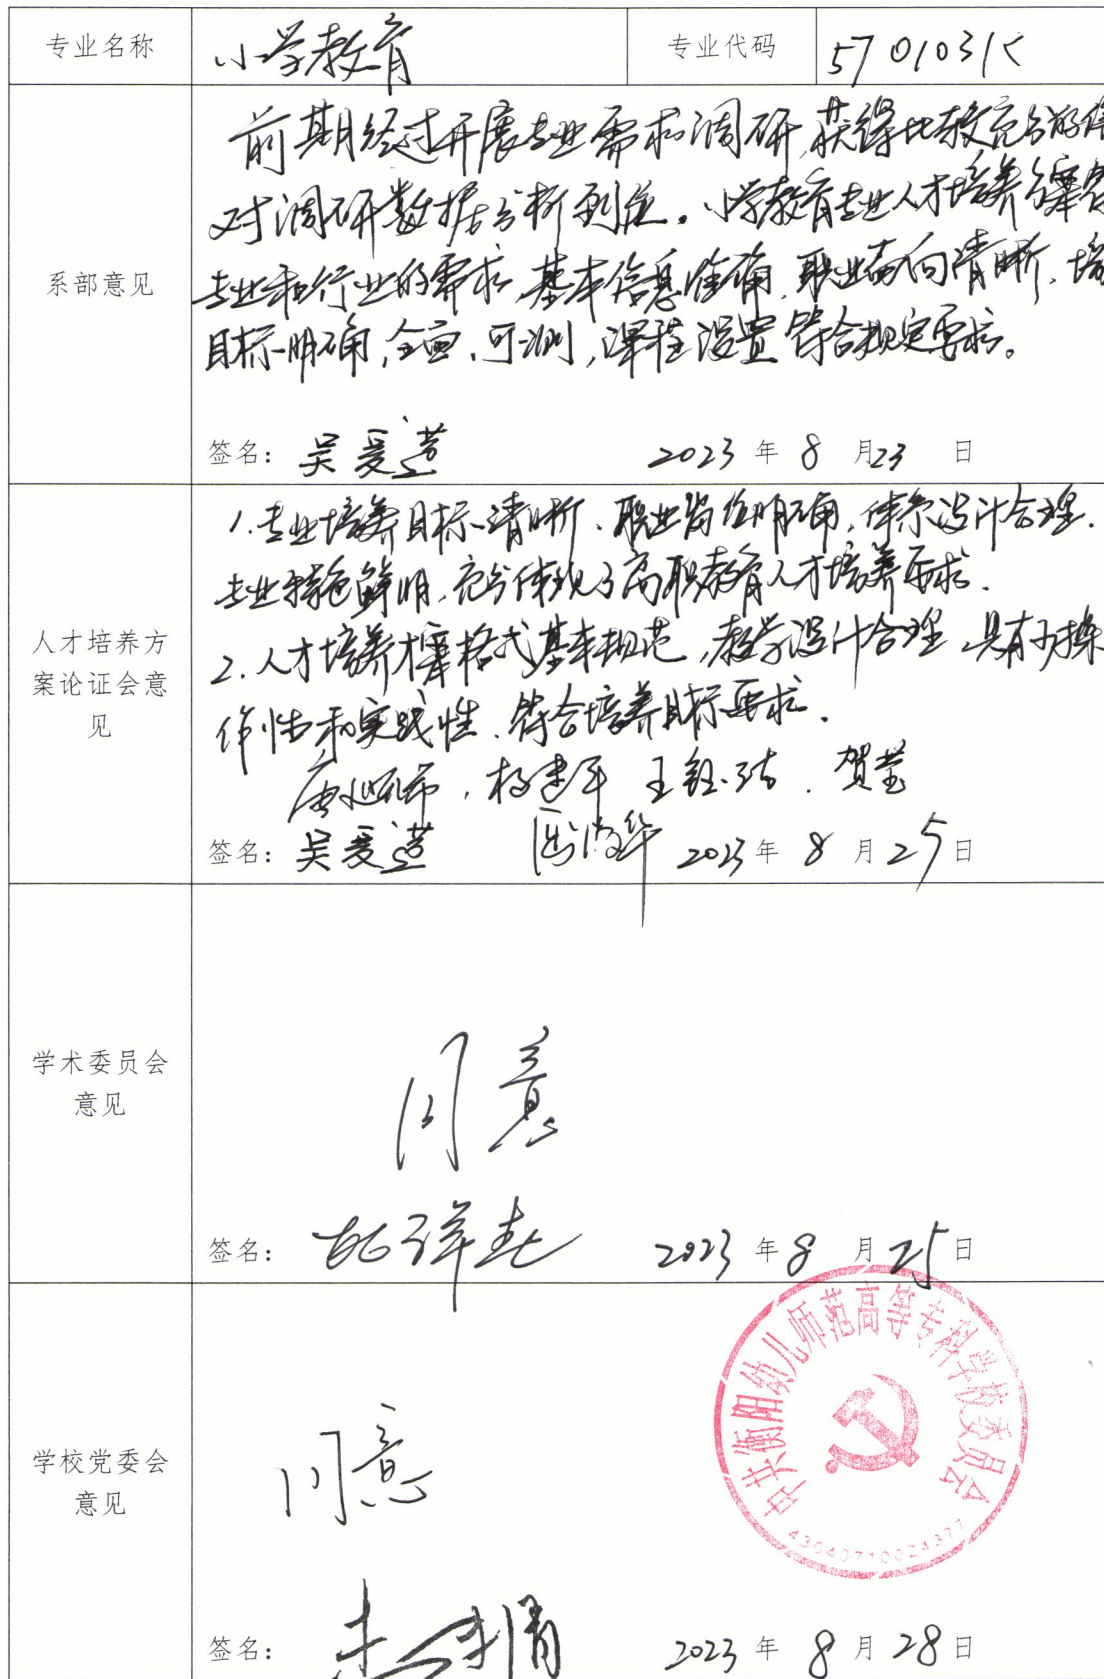 专业名称 小学教育 专业代码 570103K
前期经过开展专业需求调研,获得比较充分的信
对调研数据分析到位。小学教育专业人才培养方案符
系部意见
专业和行业的需求,基本信息准确,职业面向清晰,培
目标明确,全面,可测,课程设置符合规定要求。
签名: 吴爱莲 2023 年 8 月 23 日
1.专业培养目标清晰、职业岗位明确,体系设计合理.
专业特色鲜明,充分体现了高职教育人才培养要求.
人才培养方
案论证会意
见
2.人才培养方案格式基本规范,教学设计合理,具有可操
作性和实践性,符合培养目标要求.
王钰洁. 贺莹
签名: 吴爱莲 2023 年 8 月 25 日
学术委员会
意见
同意
签名: 2023 年 8 月 25 日
中共衡阳幼儿师范高等专科学校委员会
学校党委会
意见
同意
43040710024377
签名: 2023 年 8 月 28 日